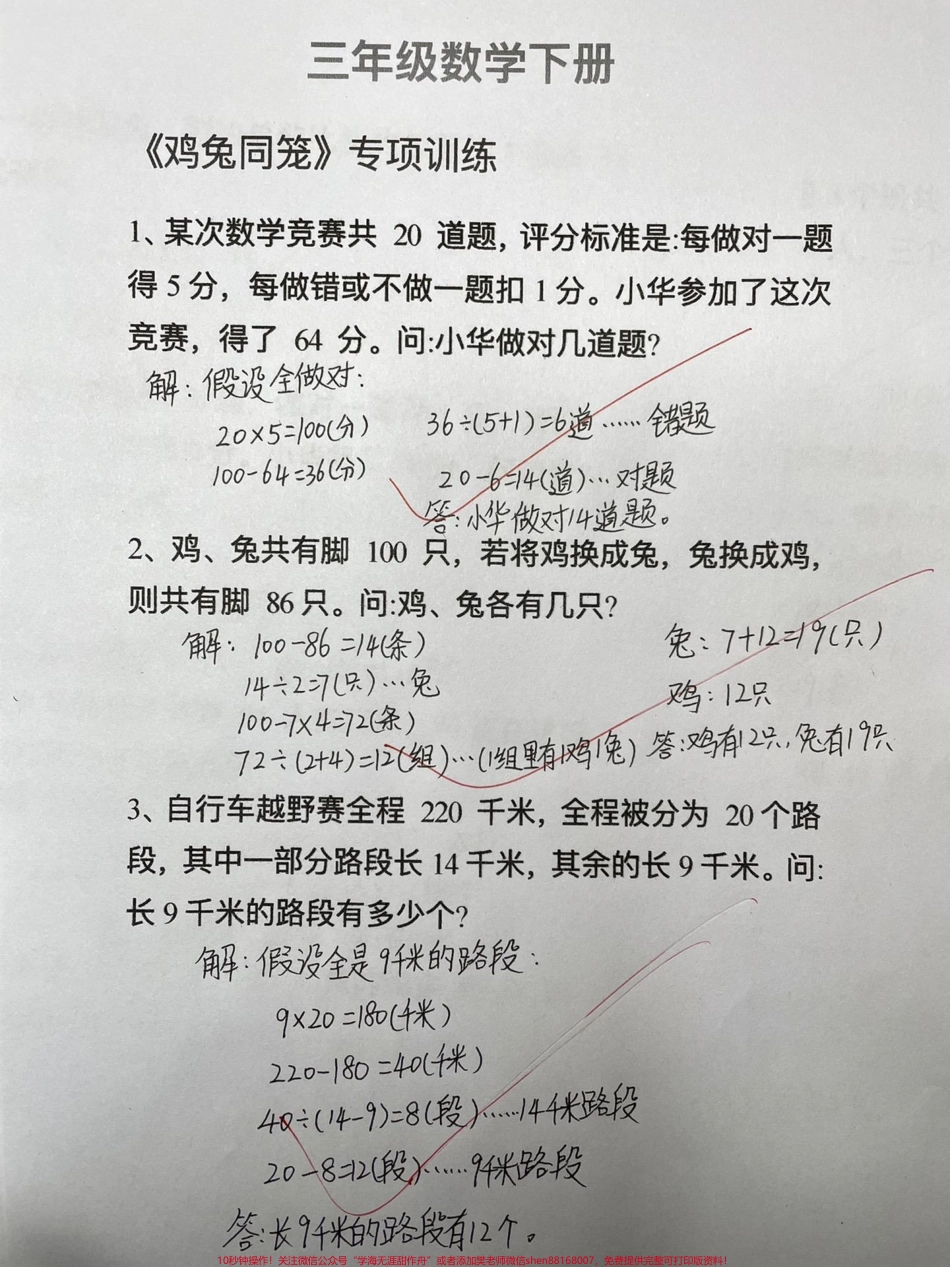 三年级数学下册
《鸡兔同笼》专项训练
1、某次数学竞赛共 20 道题，评分标准是:每做对一题
得 5 分，每做错或不做一题扣 1 分。小华参加了这次
竞赛，得了 64 分。问:小华做对几道题?
解：假设全做对：
20×5=100(分)
100-64=36(分)
36÷(5+1)=6道……错题
20-6=14(道)…对题
答：小华做对14道题。
2、鸡、兔共有脚 100 只，若将鸡换成兔，兔换成鸡，
则共有脚 86 只。问:鸡、兔各有几只?
解：100-86=14(条)
14÷2=7(只)…兔
100-7×4=72(条)
72÷(2+4)=12(组)…(1组里有1鸡1兔)
兔：7+12=19(只)
鸡：12只
答：鸡有12只，兔有19只
3、自行车越野赛全程 220 千米，全程被分为 20 个路
段，其中一部分路段长 14 千米，其余的长 9 千米。问:
长 9 千米的路段有多少个?
解：假设全是9千米的路段：
9×20=180(千米)
220-180=40(千米)
40÷(14-9)=8(段)……14千米路段
20-8=12(段)……9千米路段
答：长9千米的路段有12个。
10秒钟操作！关注微信公众号“学海无涯甜作舟”或者添加樊老师微信shen88168007，免费提供完整可打印版资料！